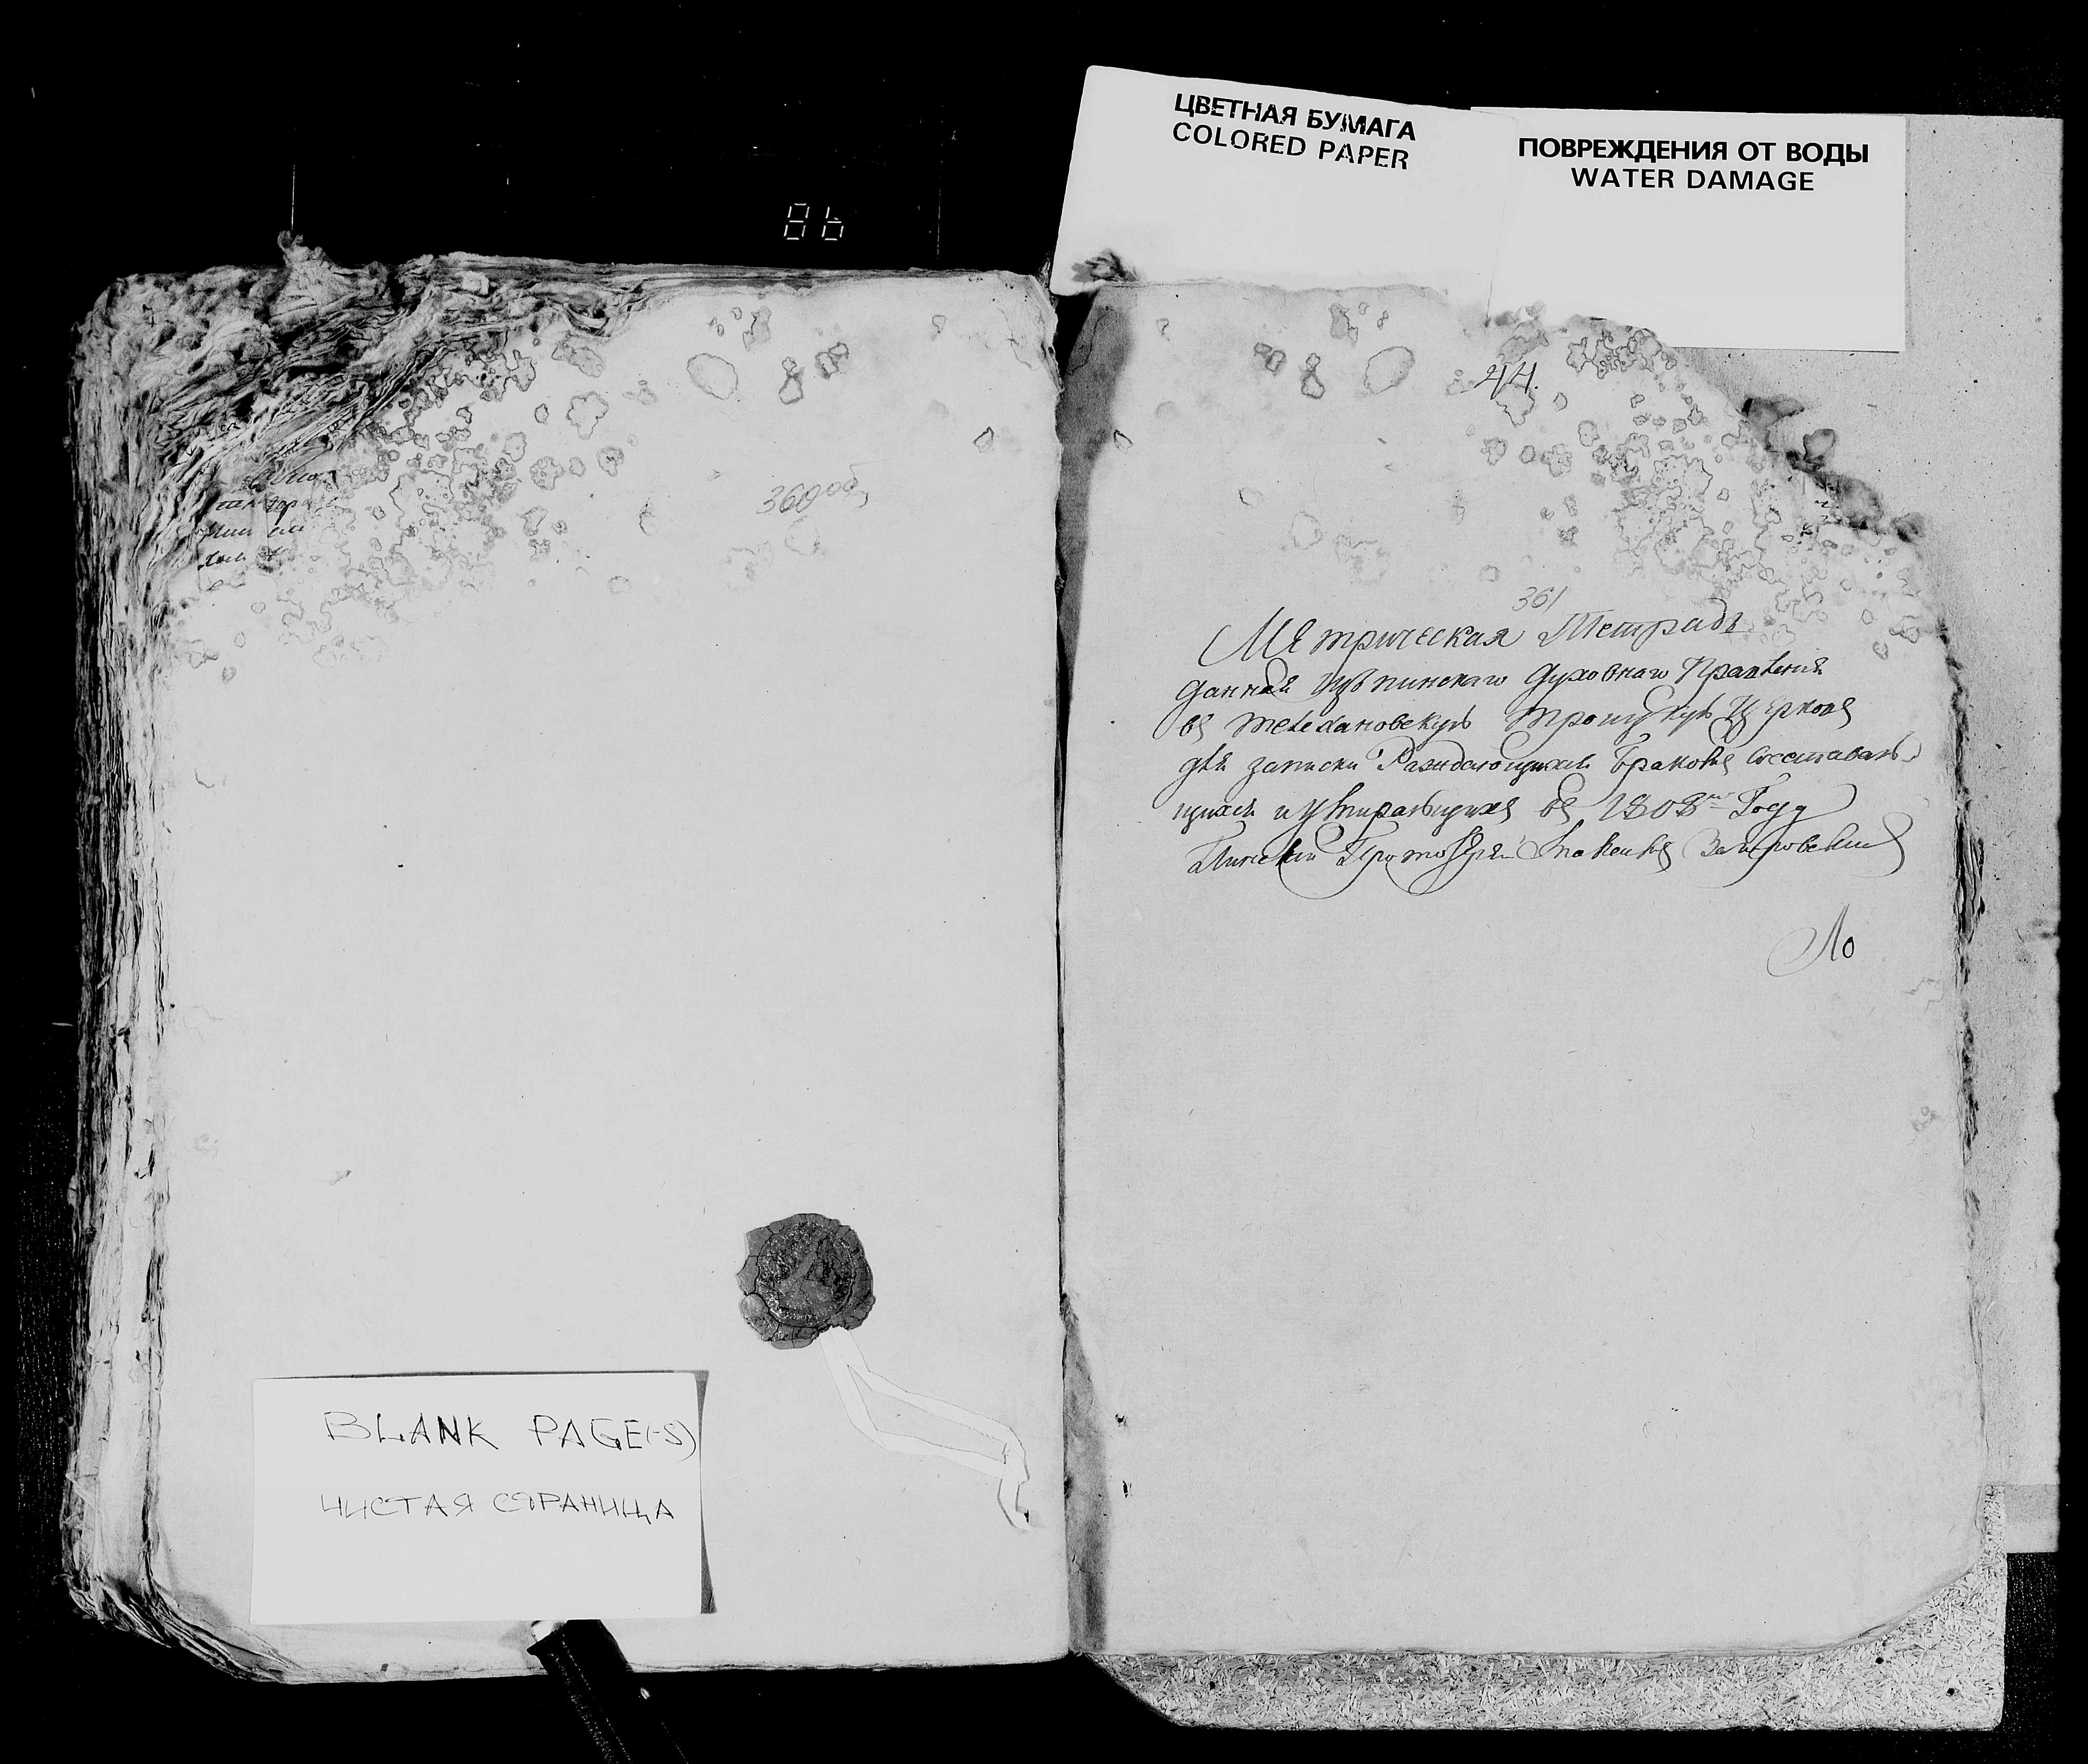 ЦВЕТНАЯ БУМАГА
COLORED PAPER
ПОВРЕЖДЕНИЯ ОТ ВОДЫ
WATER DAMAGE
86
360об
44.
361
Метрическая Тетрадь
данная изъ пинскаго духовнаго Правления
въ телехановскую троицкую Церковь
для записки Раждающихся Браковъ сочетаваю
щихся и умирающихъ въ 1808м Году
Пинский Протоиерей
По
BLANK PAGE(-S)
ЧИСТАЯ СТРАНИЦА